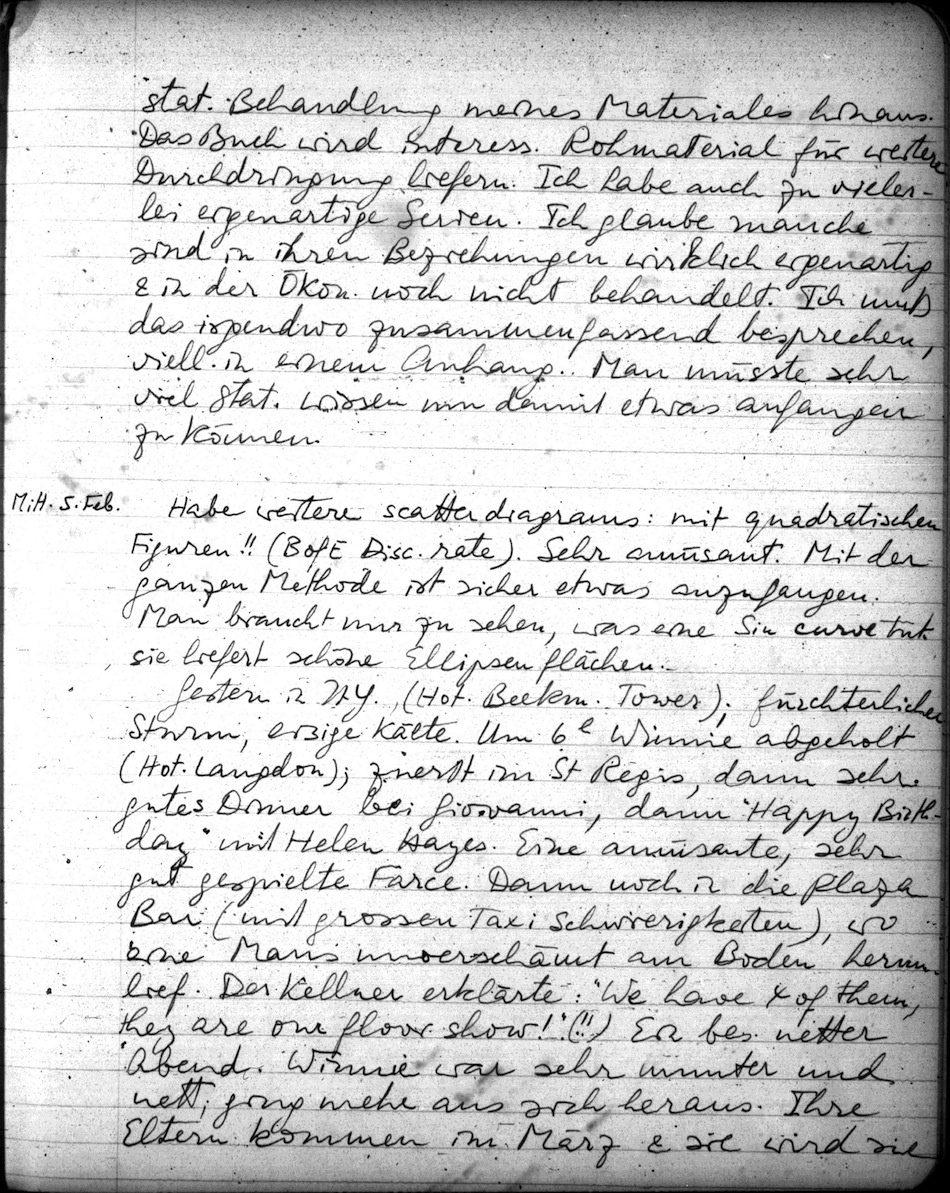 stat. Behandlung meines Materiales hinaus.
Das Buch wird interess. Rohmaterial für weitere
Durchdringung liefern. Ich habe auch zu vieler-
lei eigenartige Serien. Ich glaube manche
sind in ihren Beziehungen wirklich eigenartig
& in der Ökon. noch nicht behandelt. Ich muß
das irgendwo zusammenfassend besprechen,
viell. in einem Anhang. Man müsste sehr
viel Stat. wissen um damit etwas anfangen
zu können.
Mitt. 5. Feb. Habe weitere scatterdiagrams: mit quadratischen
Figuren!! (BofE Disc. rate). Sehr amüsant. Mit der
ganzen Methode ist sicher etwas anzufangen.
Man braucht nur zu sehen, was eine Sin curve tut
sie liefert schöne Ellipsenflächen.
Gestern in NY. (Hot. Beekm. Tower); fürchterlicher
Sturm, eisige Kälte. Um 6h Winnie abgeholt
(Hot. Langdon); zuerst im St Regis, dann sehr
gutes Dinner bei Giovanni, dann "Happy Birth-
day" mit Helen Hayes. Eine amüsante, sehr
gut gespielte Farce. Dann noch in die Plaza
Bar (mit grossen Taxi Schwierigkeiten), wo
eine Maus unverschämt am Boden herum-
lief. Der Kellner erklärte: "We have 4 of them,
they are our floor show!" (!!) Ein bes. netter
Abend. Winnie war sehr munter und
nett; ging mehr aus sich heraus. Ihre
Eltern kommen im März & sie wird sie